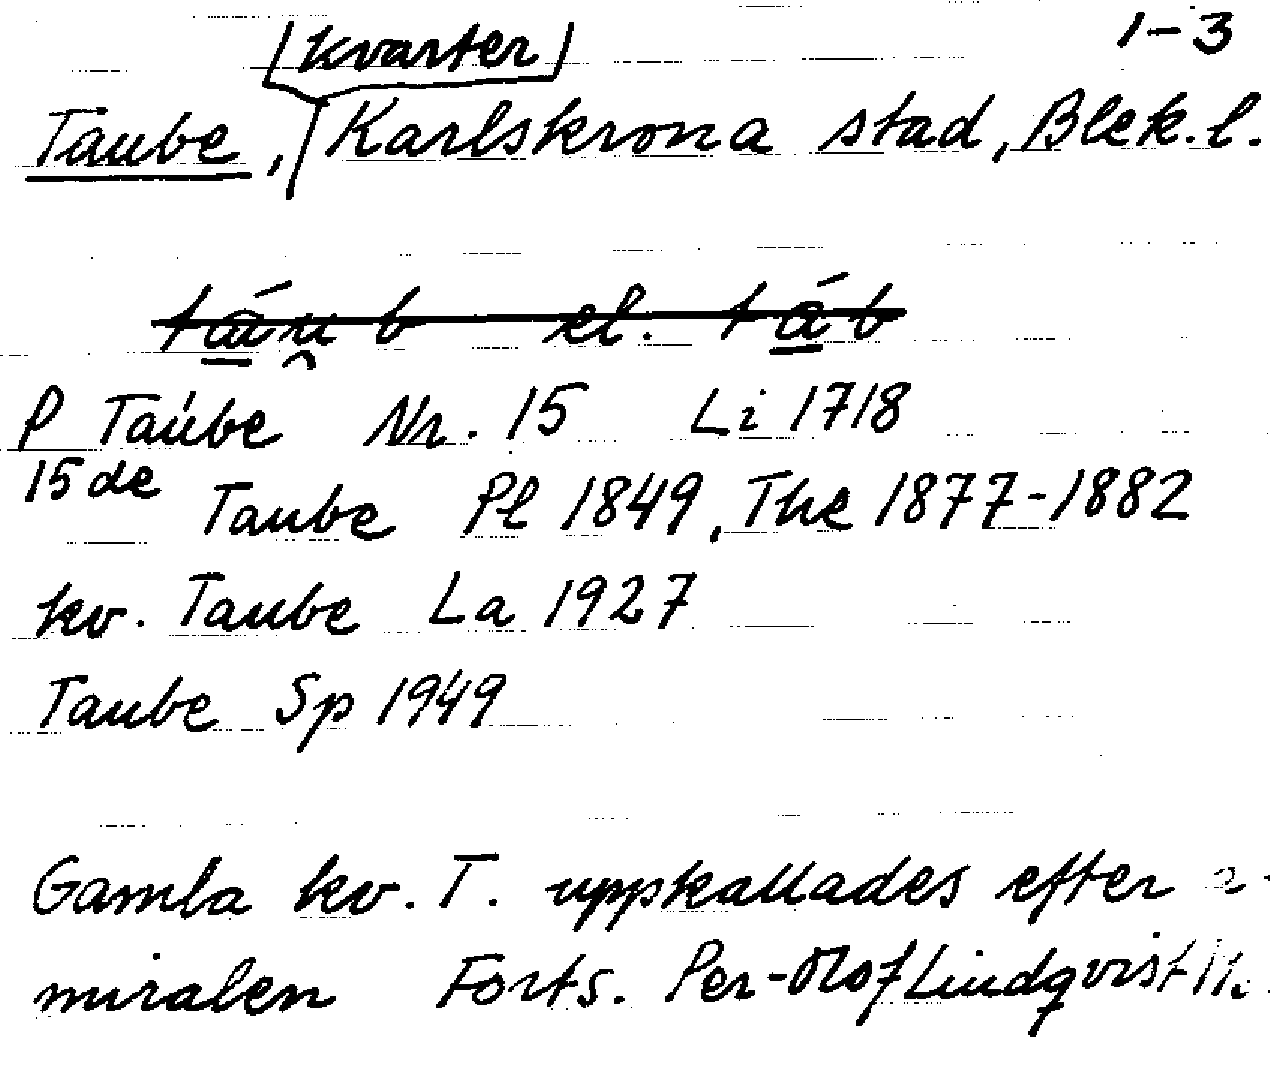 1-3
kvarter
Taube, Karlskrona stad, Blek. l.
táu̯b el. táb
P Taübe Nr. 15 Li 1718
15de Taube Pl 1849, The 1877-1882
kv. Taube La 1927
Taube Sp 1949
Gamla kv. T. uppkallades efter
miralen Forts. Per-Olof Lindqvist